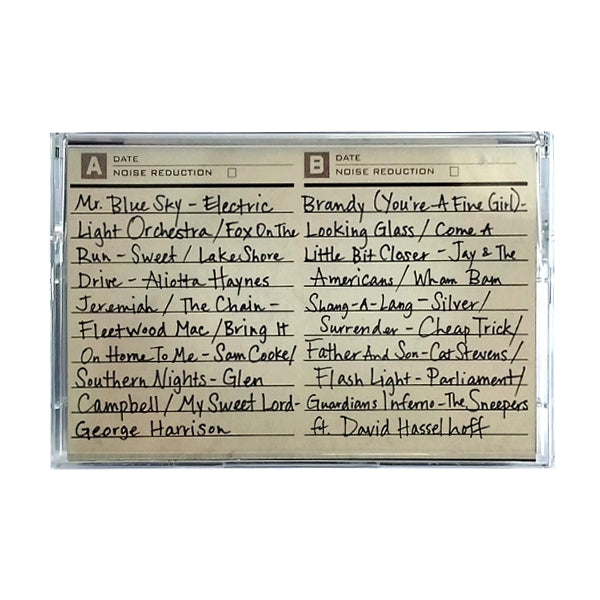 A DATE
NOISE REDUCTION
Mr. Blue Sky - Electric
Light Orchestra / Fox On The
Run - Sweet / Lake Shore
Drive - Aliotta Haynes
Jeremiah / The Chain -
Fleetwood Mac / Bring It
On Home To Me - Sam Cooke /
Southern Nights - Glen
Campbell / My Sweet Lord -
George Harrison
B DATE
NOISE REDUCTION
Brandy (You're A Fine Girl) -
Looking Glass / Come A
Little Bit Closer - Jay & The
Americans / Wham Bam
Shang-A-Lang - Silver /
Surrender - Cheap Trick /
Father And Son - Cat Stevens /
Flash Light - Parliament /
Guardians Inferno - The Sneepers
ft. David Hasselhoff